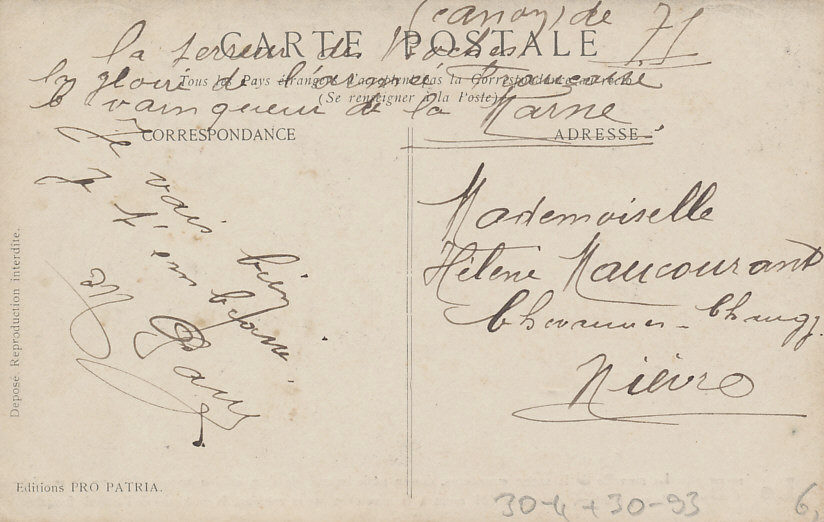 (canon) de 75
CARTE POSTALE
la terreur des Boches
Tous les Pays étrangers n'acceptent pas la Correspondance au recto
la gloire de l'armée française
(Se renseigner à la Poste)
le vainqueur de la Marne
CORRESPONDANCE
ADRESSE
Je vais bien
Je t'embrasse
Mademoiselle
Hélène Maucourant
Chevannes-Changy
Nièvre
Déposé. Reproduction interdite.
Editions PRO PATRIA.
30-4 + 30-93
6,